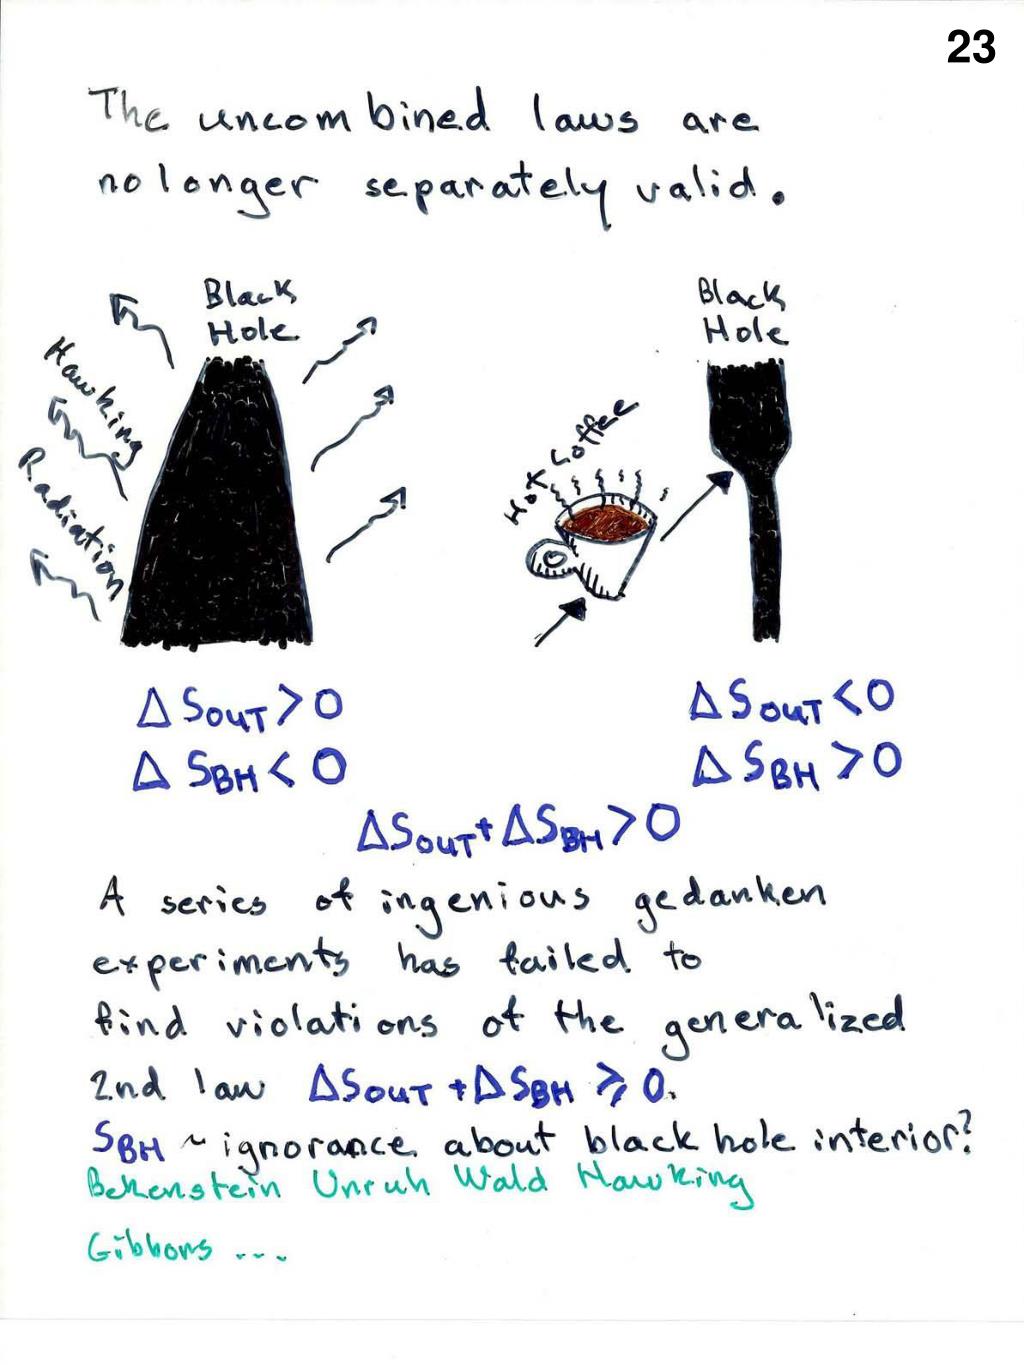 23
The uncombined laws are
no longer separately valid.
Black
Hole
Hawking
Radiation
Black
Hole
Hot Coffee
Δ S_OUT > 0
Δ S_BH < 0
Δ S_OUT < 0
Δ S_BH > 0
ΔS_OUT + ΔS_BH > 0
A series of ingenious gedanken
experiments has failed to
find violations of the generalized
2nd law ΔS_OUT + ΔS_BH ≥ 0.
S_BH ~ ignorance about black hole interior?
Bekenstein Unruh Wald Hawking
Gibbons ...